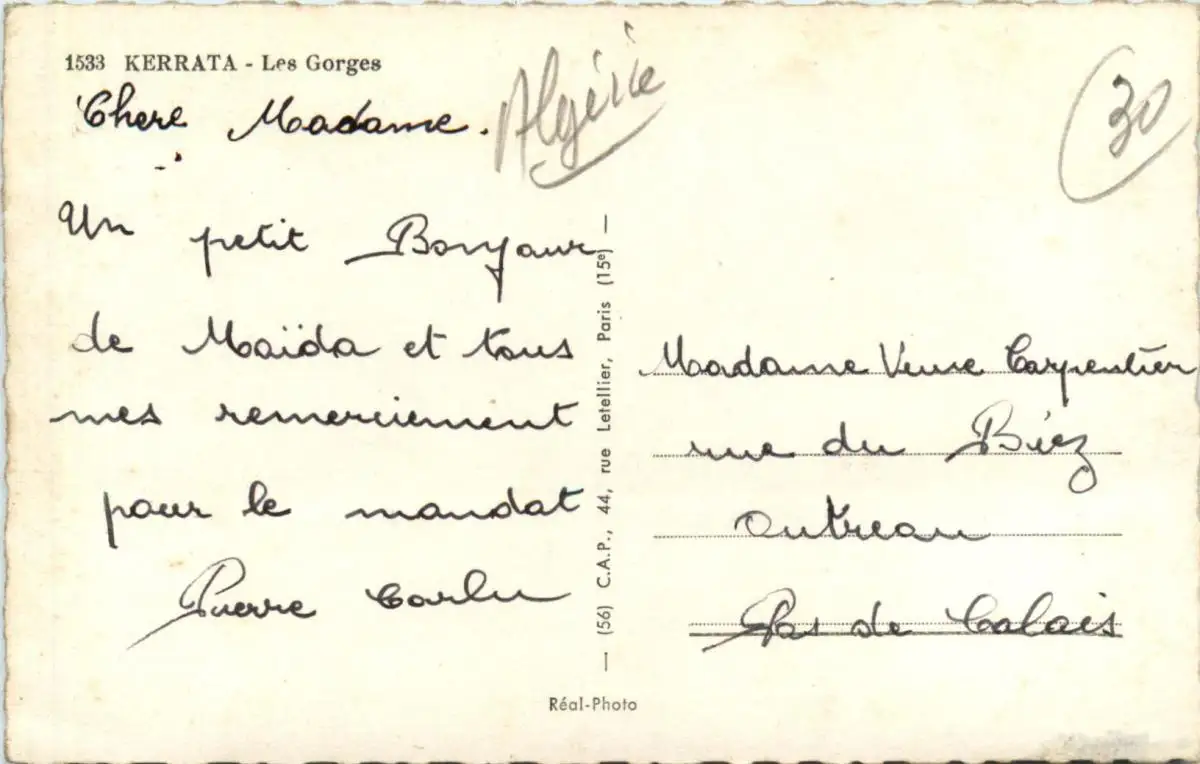 1533 KERRATA - Les Gorges
Algérie
30
Chere Madame.
Un petit Bonjour
de Maïda et tous
mes remerciement
pour le mandat
Pierre Carlu
— (56) C.A.P., 44, rue Letellier, Paris (15e) —
Réal-Photo
Madame Veuve Carpentier
rue du Biez
Outreau
Pas de Calais